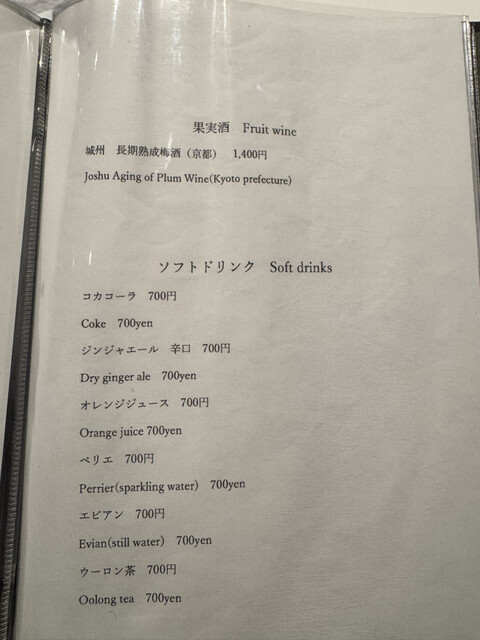 果実酒 Fruit wine
城州 長期熟成梅酒（京都） 1,400円
Joshu Aging of Plum Wine(Kyoto prefecture)
ソフトドリンク Soft drinks
コカコーラ 700円
Coke 700yen
ジンジャエール 辛口 700円
Dry ginger ale 700yen
オレンジジュース 700円
Orange juice 700yen
ペリエ 700円
Perrier(sparkling water) 700yen
エビアン 700円
Evian(still water) 700yen
ウーロン茶 700円
Oolong tea 700yen